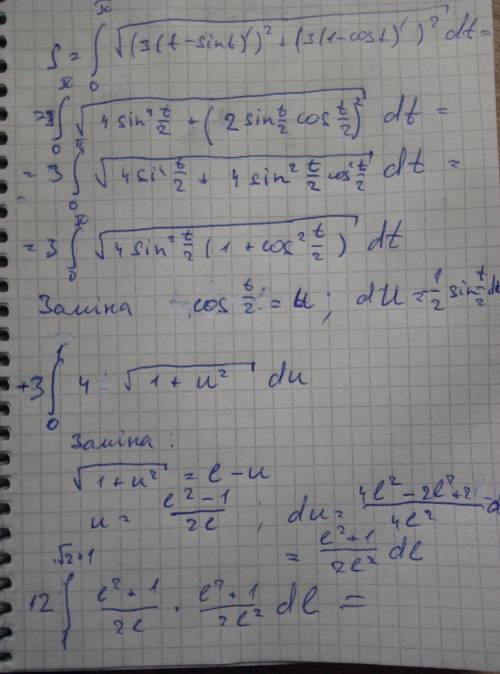 S = ∫₀^π √((3(t-sint)')² + (3(1-cost)')²) dt =
= 3 ∫₀^π √(4 sin⁴ t/2 + (2 sin t/2 cos t/2)²) dt =
= 3 ∫₀^π √(4 sin⁴ t/2 + 4 sin² t/2 cos² t/2) dt =
= 3 ∫₀^π √(4 sin² t/2 (1 + cos² t/2)) dt
Заміна cos t/2 = u; du = -1/2 sin t/2 dt
+3 ∫₀¹ 4 √(1 + u²) du
Заміна:
√(1+u²) = l - u
u = (l² - 1)/2l ; du = (4l² - 2l² + 2)/4l² dl
= (l² + 1)/2l² dl
12 ∫₁^(√2+1) (l² + 1)/2l · (l² + 1)/2l² dl =